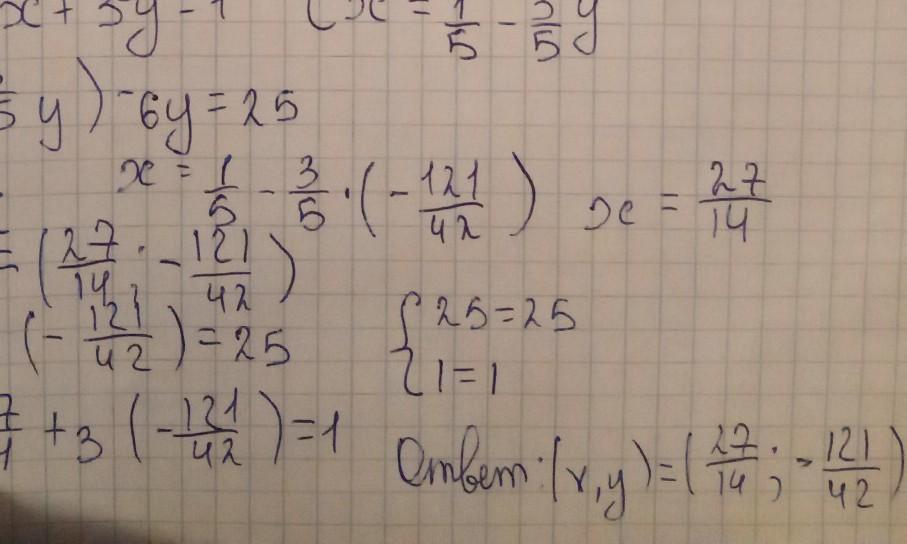 x + 3y = 1 { x = 1/5 - 3/5 y
5 y) - 6y = 25
x = 1/5 - 3/5 · (- 121/42) x = 27/14
= (27/14 ; - 121/42)
(- 121/42) = 25 { 25 = 25
1 = 1
+ 3 (- 121/42) = 1
Ответ: (x, y) = (27/14 ; - 121/42)